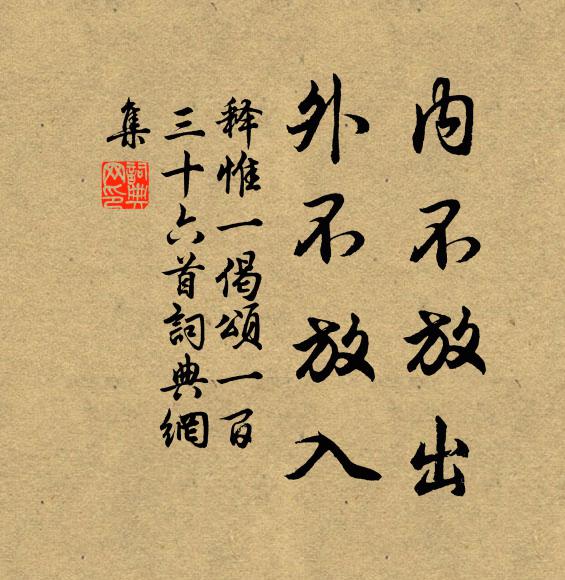 内不放出
外不放入
释惟一偈頌一百
三十六首詞典網
集
詞典
网印